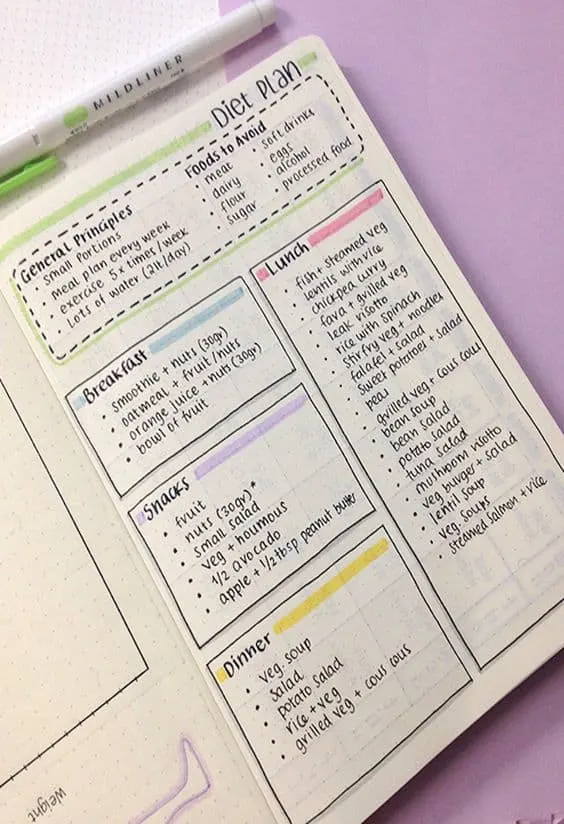 MILDLINER
Diet Plan
General Principles
• small portions
• meal plan every week
• exercise 5x times/week
• Lots of water (2lt/day)
Foods to Avoid
• meat
• dairy
• flour
• sugar
• soft drinks
• eggs
• alcohol
• processed food
Breakfast
• smoothie + nuts (30gr)
• oatmeal + fruit/nuts
• orange juice + nuts (30gr)
• bowl of fruit
Snacks
• fruit
• nuts (30gr)*
• small salad
• veg + houmous
• 1/2 avocado
• apple + 1/2 tbsp peanut butter
Dinner
• veg. soup
• salad
• potato salad
• rice + veg
• grilled veg + cous cous
Lunch
• fish + steamed veg
• lentils with rice
• chickpea curry
• fava + grilled veg
• leak risotto
• rice with spinach
• stir fry veg + noodles
• falafel + salad
• sweet potatoes + salad
• peas
• grilled veg + cous cous
• bean soup
• bean salad
• potato salad
• tuna salad
• mushroom risotto
• veg burger + salad
• lentil soup
• veg. soups
• steamed salmon + rice
Weight